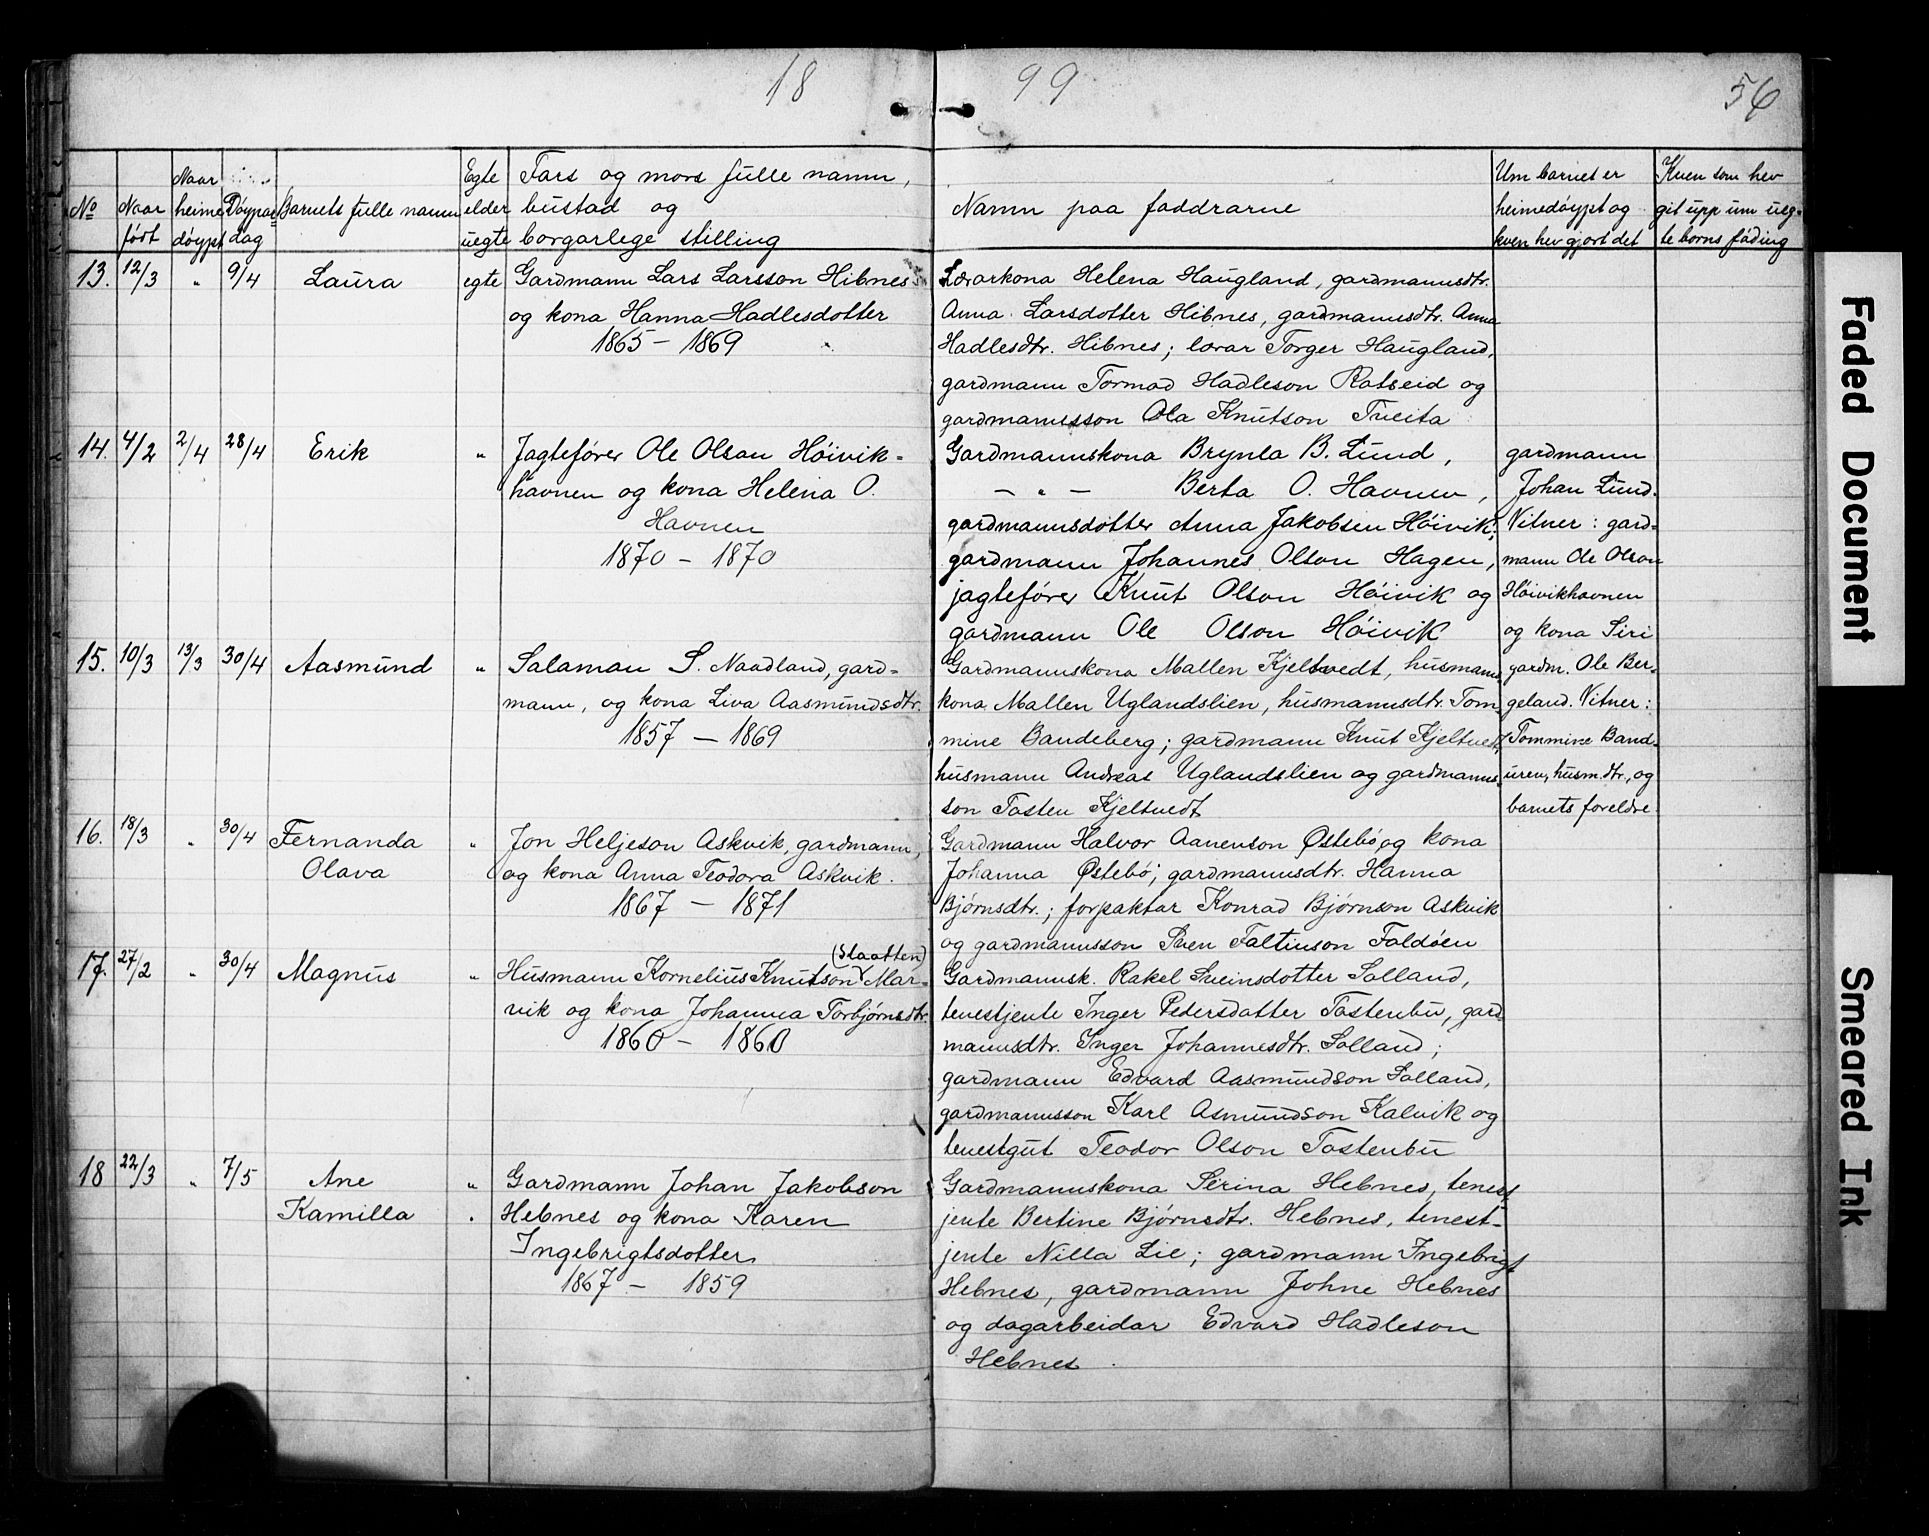 18 99 56
No
Naar født
Naar heime døypt
Døypardag
Barnets fulle namn
Egte elder uegte
Fars og mors fulle namn,
bustad og
borgarlege stilling
Namn paa faddrarne
Um barnet er
heimedøypt og
kven hev gjort det
Kven som hev
git upp um ueg-
te borns fáding
13. 12/3 " 9/4 Laura egte
Gardmann Lars Larsson Hibnes
og kona Hanna Hadlesdotter
1865 - 1869
Lærarkona Helena Haugland, gardmannsdtr.
Anna Larsdotter Hibnes, gardmannsdtr. Anna
Hadlesdtr. Hibnes; lærar Torger Haugland,
gardmann Tormod Hadleson Ratseid og
gardmannsson Ola Knutson Tveita
14. 4/2 2/4 28/4 Erik "
Jagtefører Ole Olson Høivik-
havnen og kona Helena O.
Havnen
1870 - 1870
Gardmannskona Brynla B. Lund,
- " - Berta O. Havnen,
gardmannsdotter Anna Jakobsen Høivik;
gardmann Johannes Olson Hagen,
jagtefører Knut Olson Høivik og
gardmann Ole Olson Høivik
gardmann
Johan Lund.
Vitner: gard-
mann Ole Olson
Høivikhavnen
og kona Siri
15. 10/3 13/3 30/4 Aasmund "
Salaman S. Naadland, gard-
mann, og kona Liva Aasmundsdtr.
1857 - 1869
Gardmannskona Mallen Kjeltvedt, husmanns-
kona Mallen Uglandslien, husmannsdtr. Tom-
mine Bandeberg; gardmann Knut Kjeltvedt,
husmann Andreas Uglandslien og gardmanns-
son Tosten Kjeltvedt
gardm. Ole Ber-
geland. Vitner:
Tommine Band-
uren, husm.dtr., og
barnets foreldre.
16. 18/3 " 30/4 Fernanda "
Olava
Jon Heljeson Askvik, gardmann,
og kona Anna Teodora Askvik.
1867 - 1871
Gardmann Halvor Aanenson Østebø og kona
Johanna Østebø; gardmannsdtr. Hanna
Bjørnsdtr.; forpaktar Konrad Bjørnson Askvik
og gardmannsson Sven Faltinson Foldøen
17. 27/2 " 30/4 Magnus "
(Slaatten)
Husmann Kornelius Knutson Mar-
vik og kona Johanna Torbjørnsdtr.
1860 - 1860
Gardmannsk. Rakel Sveinsdotter Solland,
tenestjente Inger Pedersdatter Tostenbu, gard-
mannsdtr. Inger Johannesdtr. Solland;
gardmann Edvard Aasmundson Solland,
gardmannsson Karl Asmundson Kalvik og
tenestgut Teodor Olson Tostenbu
18 22/3 " 7/5 Ane "
Kamilla
Gardmann Johan Jakobson
Hebnes og kona Karen
Ingebrigtsdotter
1867 - 1859
Gardmannskona Serina Hebnes, tenest
jente Bertine Bjørnsdtr. Hebnes, tenest-
jente Nilla Lie; gardmann Ingebrigt
Hebnes, gardmann Johne Hebnes
og dagarbeidar Edvard Hadleson
Hebnes.
Faded Document
Smeared Ink